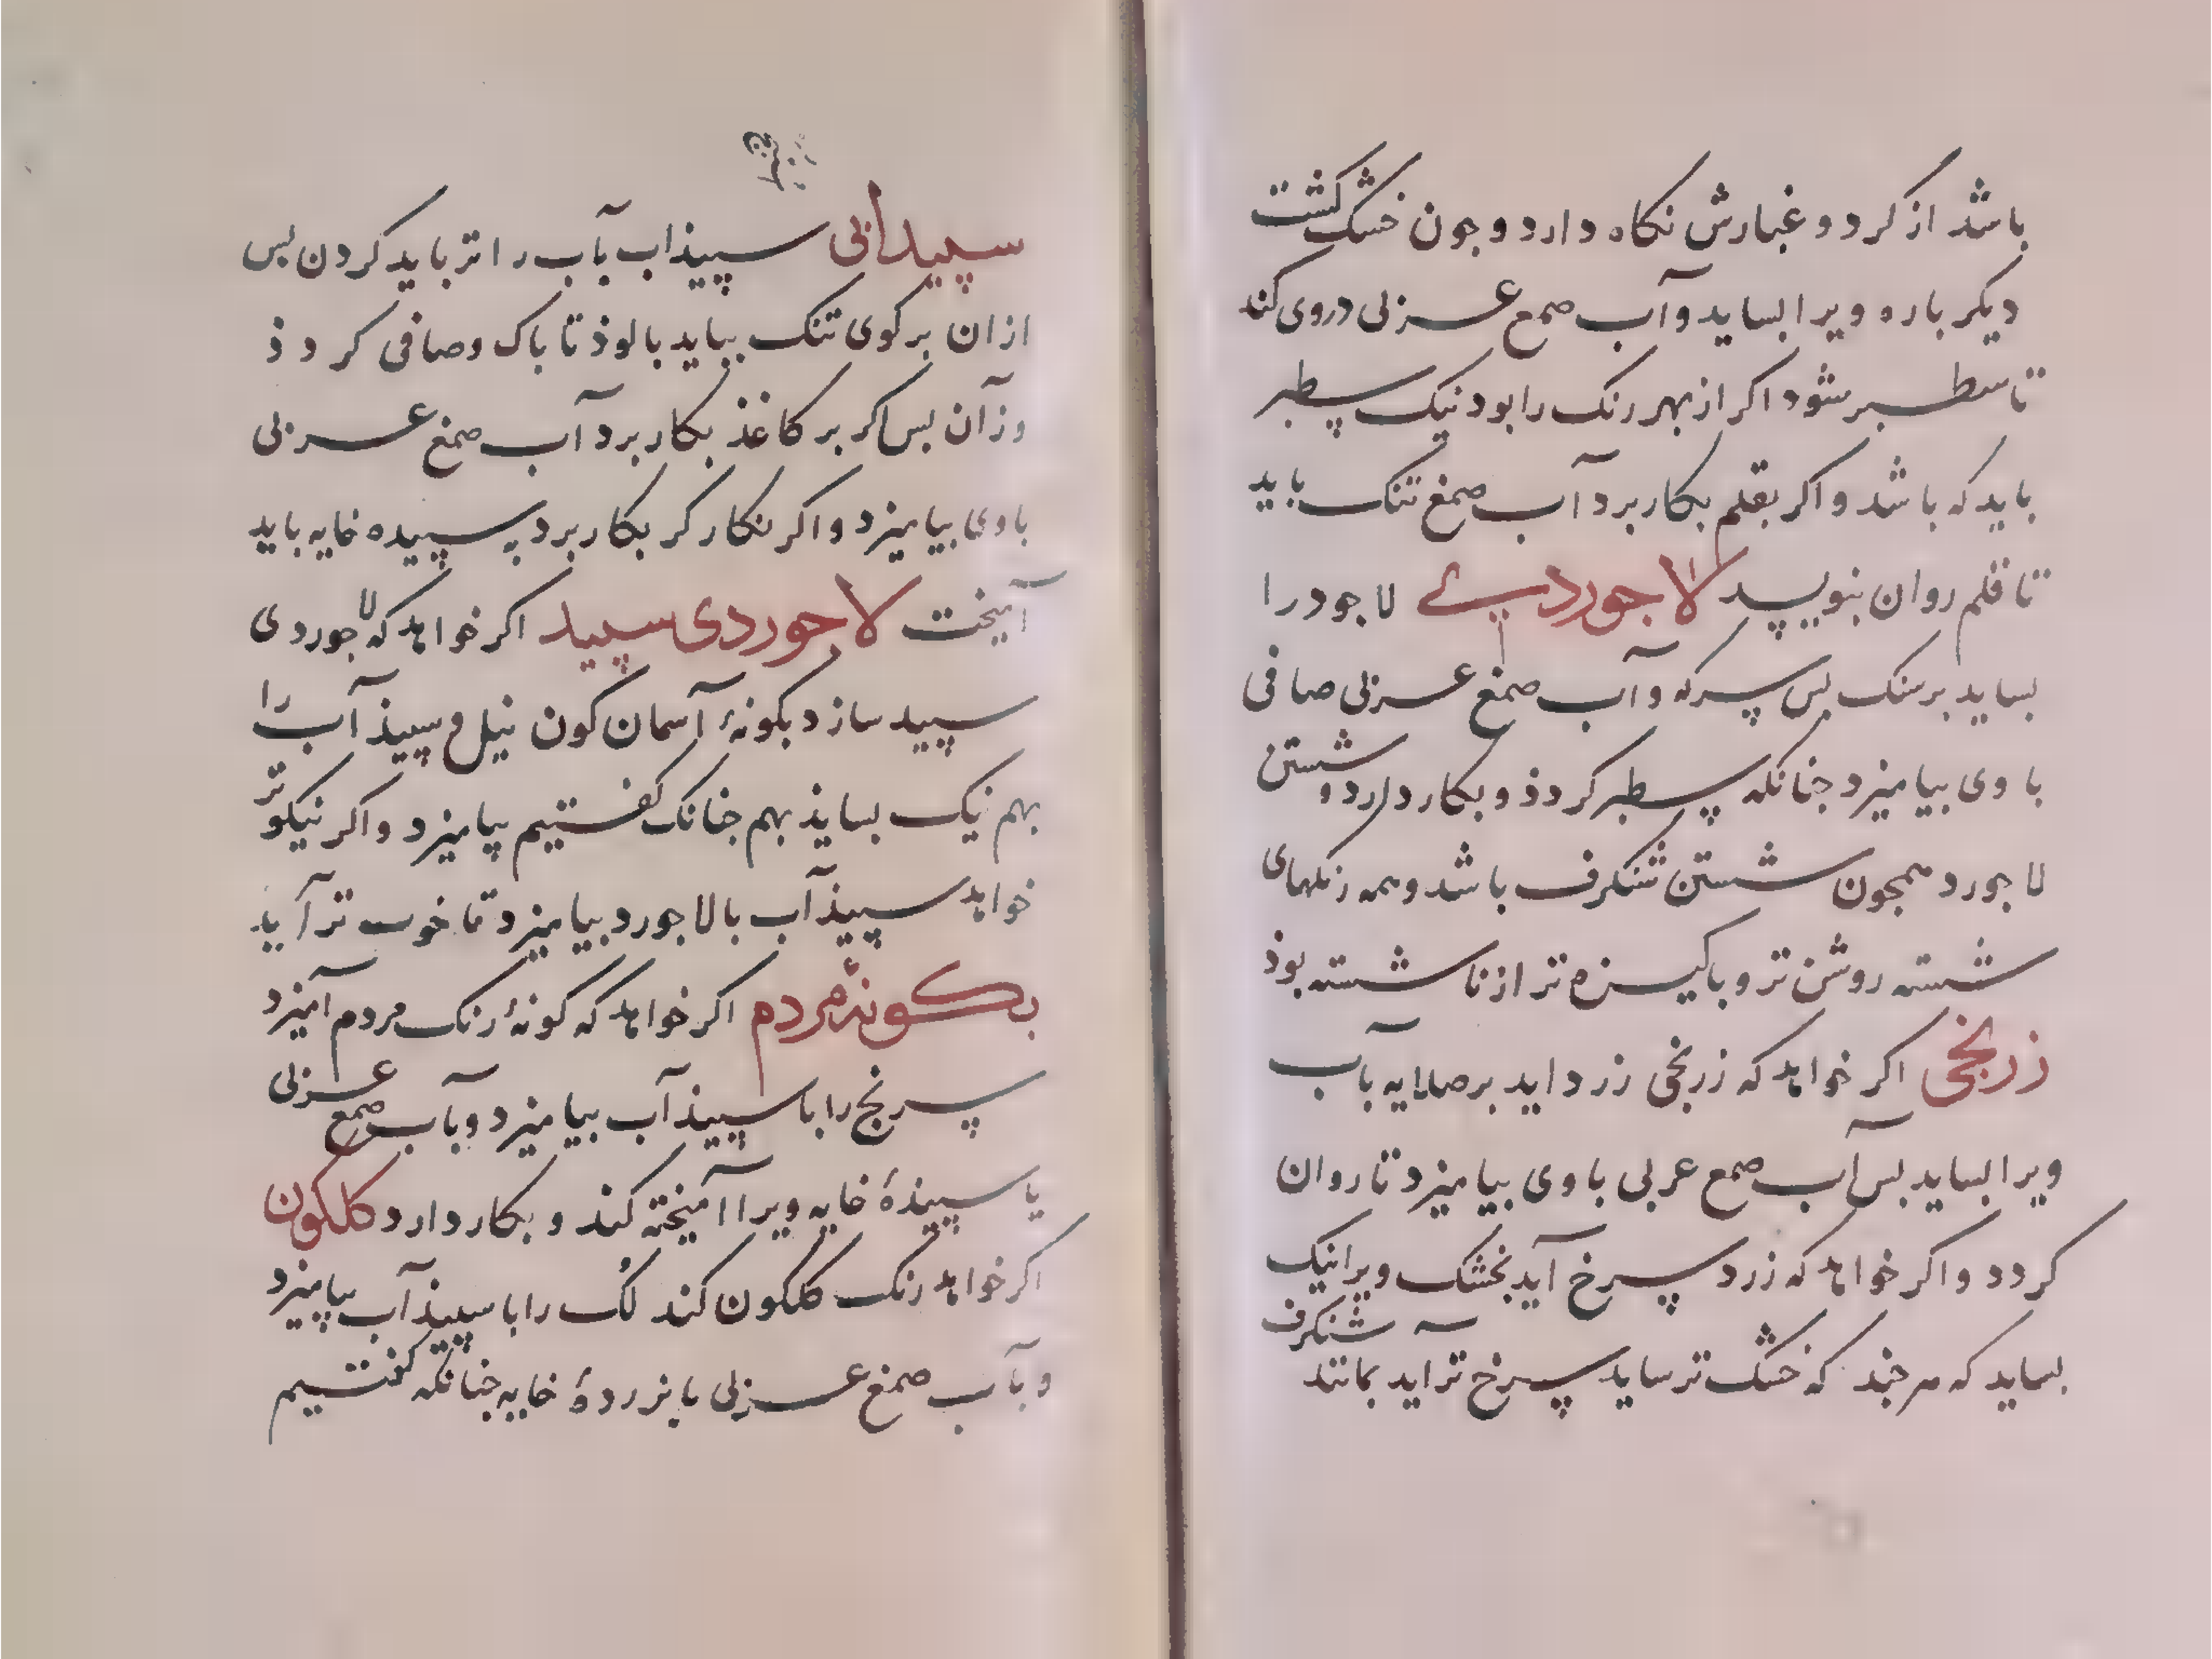 باشد از کرد و غبارش نکاه دارد و جون خشک کشت
دیکر باره ویرا بساید و آب صمغ عربی دروی کند
تا سطبر شود اکر از بهر رنک را بود نیک سطبر
باید که باشد و اکر بقلم بکار برد آب صمغ تنک باید
تا قلم روان بنویسد لاجوردی لاجورد را
بساید بر سنک بس سرکه و آب صمغ عربی صافی
با وی بیامیزد جنانکه سطبر کردذ و بکار دارد و شستن
لاجورد همجون شستن شنکرف باشد و همه رنکهای
شسته روشن تر و باکیزه تر از ناشسته بوذ
زرنخی اکر خواهد که زرنخی زرد اید بر صلایه بآب
ویرا بساید بس آب صمغ عربی با وی بیامیزد تا روان
کردد و اکر خواهد که زرد سرخ آید بخشک ویرا نیک
بساید که هر جند که خشک تر ساید سرخ تر آید بمانند شنکرف
سپیدابی سپیذاب بآب را تر باید کردن بس
ازان برکوی تنک بباید بالوذ تا باک و صافی کردذ
وزآن بس اکر بر کاغذ بکار برد آب صمغ عربی
باوی بیامیزد و اکر نکارکر بکار برد به سپیده خایه باید
آمیخت لاجوردی سپید اکر خواهد که لاجوردی
سپید سازد بکونهٔ آسمان کون نیل و سپیذآب را
بهم نیک بسایذ بهم جنانک کفتیم بیامیزد و اکر نیکوتر
خواهد سپیذآب بالاجورد بیامیزد تا خوب تر آید
بکونهٔ مردم اکر خواهد که کونهٔ رنک مردم آمیزد
سرنج را با سپیذآب بیامیزد و بآب صمغ عربی
یا سپیذهٔ خایه ویرا آمیخته کند و بکار دارد کلکون
اکر خواهد رنک کلکون کند لک را با سپیذآب بیامیزد
و بآب صمغ عربی یا بزردهٔ خایه جنانکه کفتیم